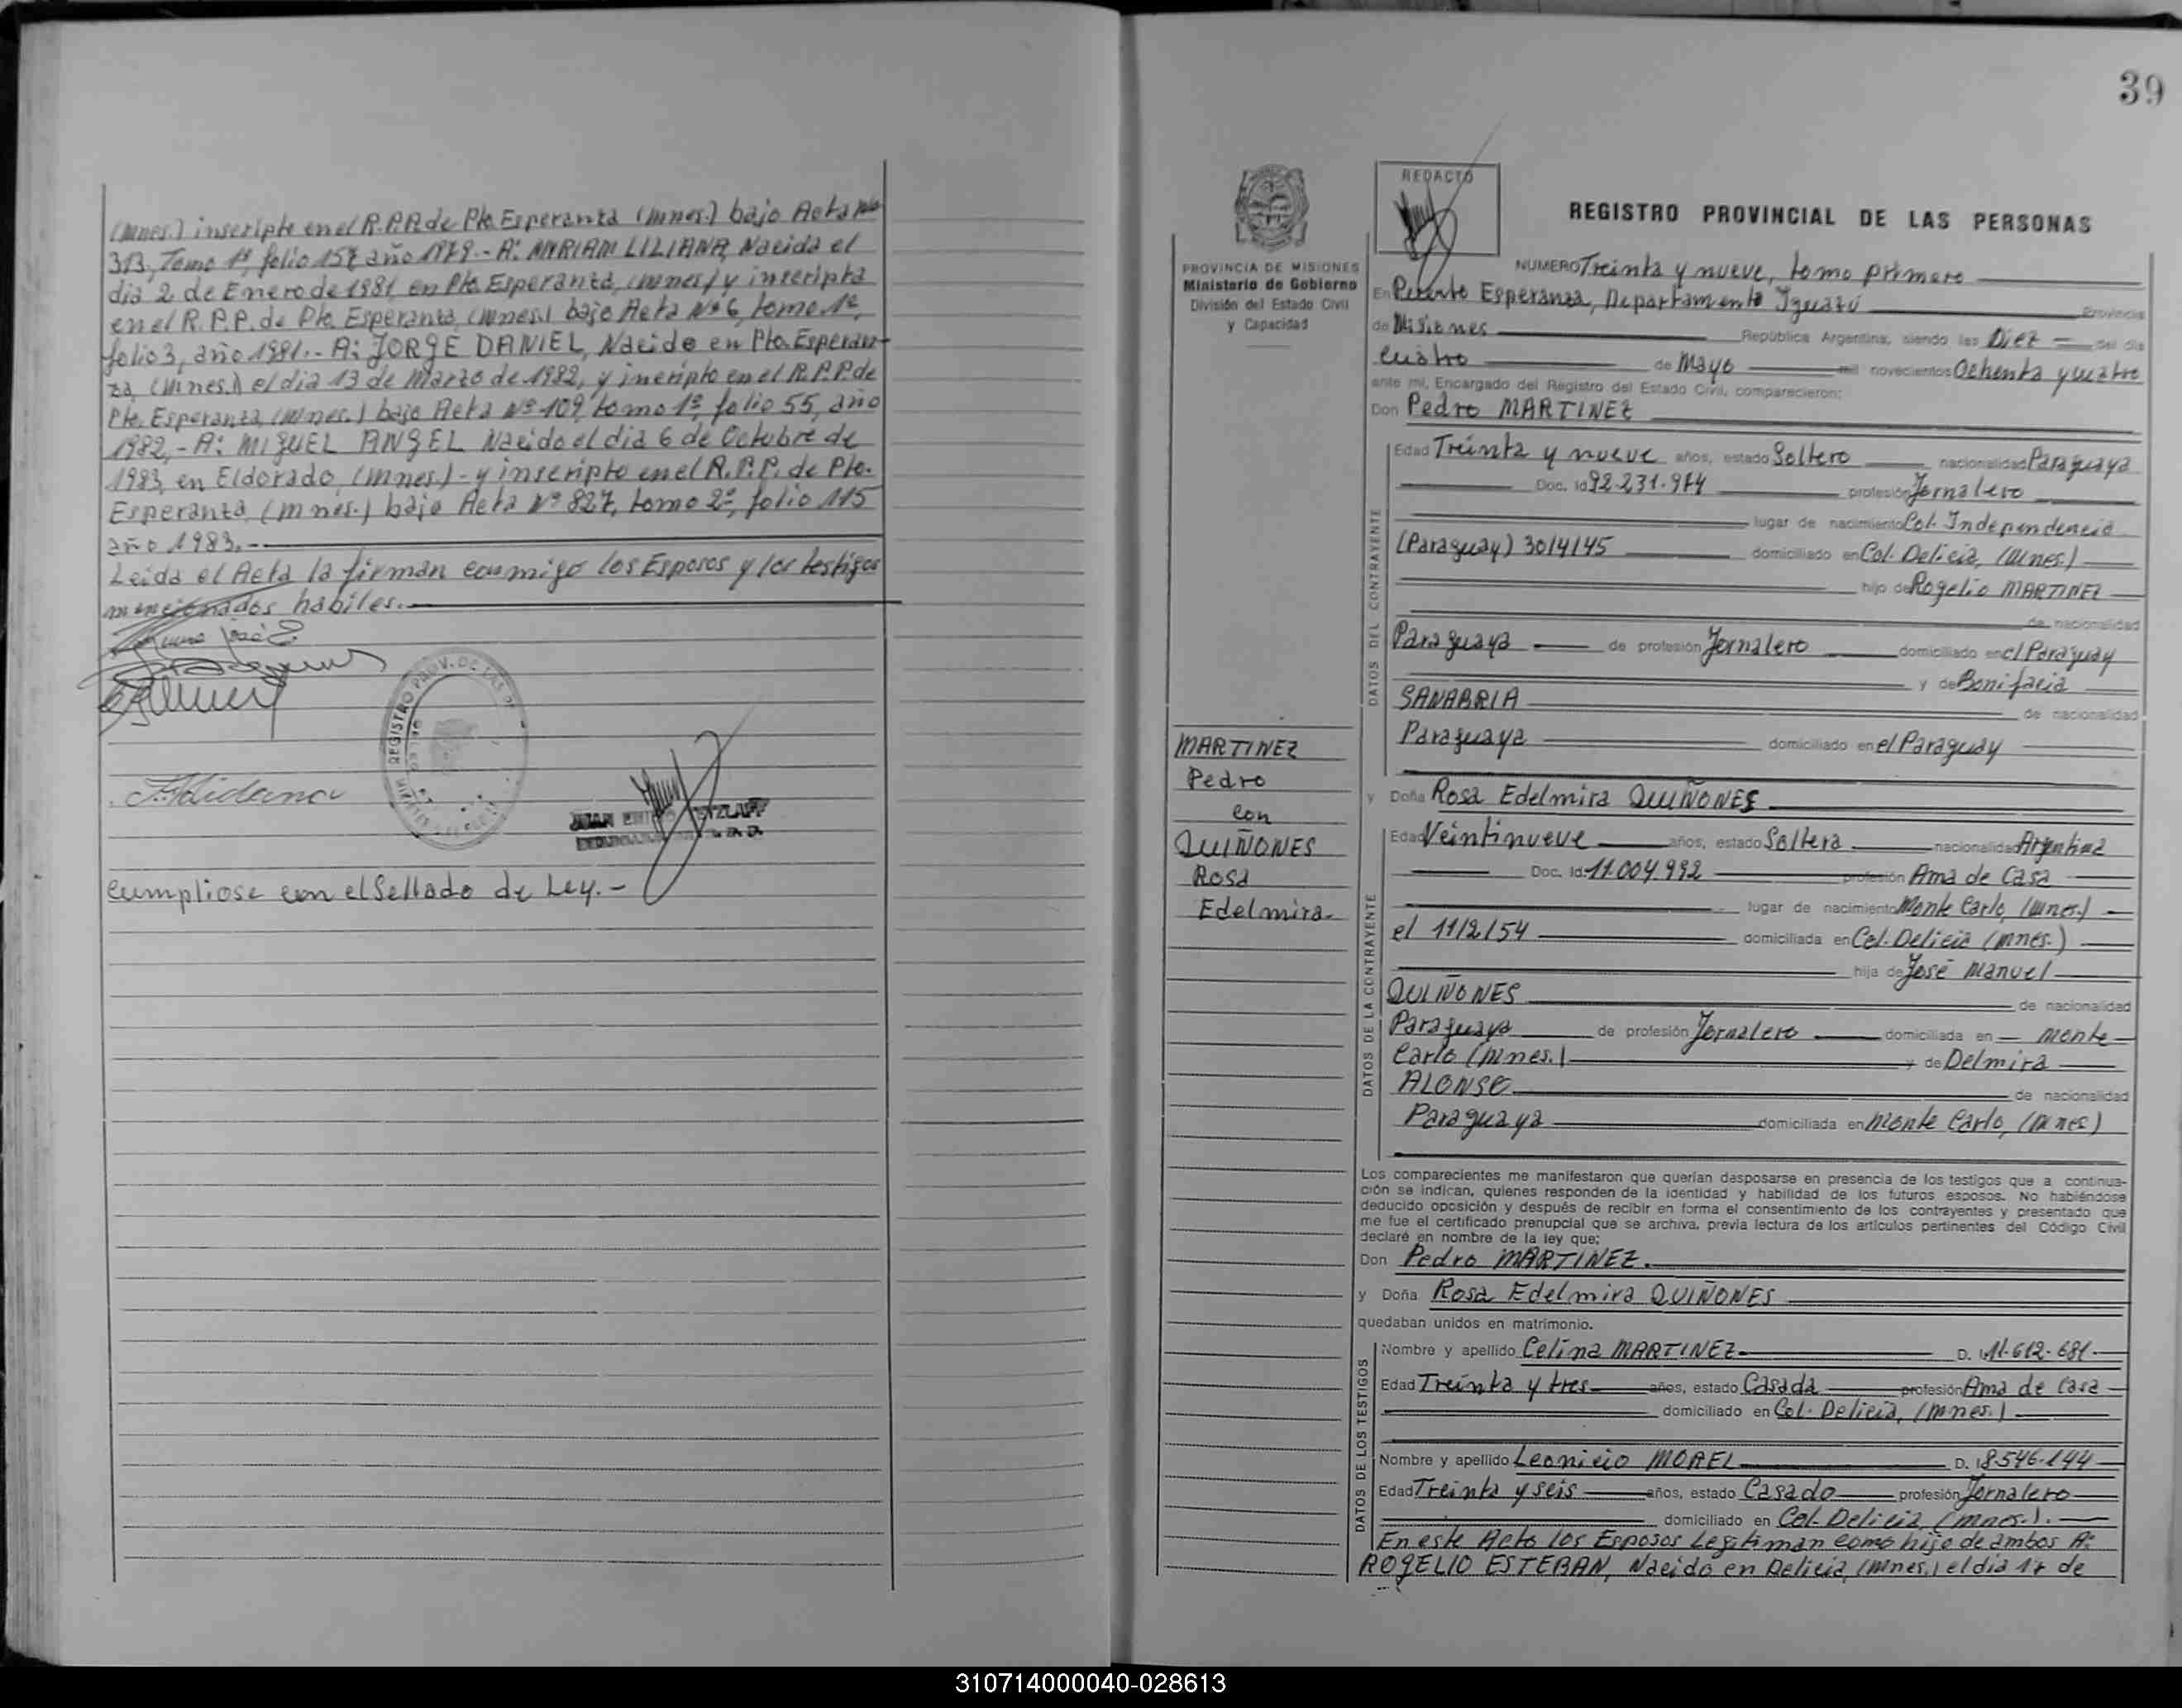 (Mnes.) inscripto en el R.P.P. de Pto. Esperanza (Mnes.) bajo Acta Nº
313, Tomo 1º, folio 157 año 1979.- A: MYRIAM LILIANA, Nacida el
dia 2 de Enero de 1981, en Pto. Esperanza, (Mnes) y inscripta
en el R.P.P. de Pto. Esperanza, (Mnes.) bajo Acta Nº 6, tomo 1º,
folio 3, año 1981.- A: JORGE DANIEL, Nacido en Pto. Esperan-
za, (Mnes.) el dia 13 de Marzo de 1982, y incripto en el R.P.P. de
Pto. Esperanza, (Mnes.) bajo Acta Nº 109, tomo 1º, folio 55, año
1982,- A: MIGUEL ANGEL Nacido el dia 6 de Octubre de
1983, en Eldorado, (Mnes.)- y inscripto en el R.P.P. de Pto.
Esperanza, (Mnes.) bajo Acta Nº 827, tomo 2º, folio 115
año 1983.-
Leida el Acta la firman conmigo los Esposos y los testigos
mencionados habiles.
REGISTRO PROV. DE LAS
JUAN
Cumpliose con el Sellado de Ley.-
39
REDACTO
REGISTRO PROVINCIAL DE LAS PERSONAS
PROVINCIA DE MISIONES
Ministerio de Gobierno
División del Estado Civil
y Capacidad
MARTINEZ
Pedro
con
QUIÑONES
Rosa
Edelmira.
NUMERO Treinta y nueve, tomo primero
En Puerto Esperanza, Departamento Iguazú Provincia
de Misiones República Argentina, siendo las Diez del día
cuatro de Mayo mil novecientos Ochenta y cuatro
ante mí, Encargado del Registro del Estado Civil, comparecieron:
Don Pedro MARTINEZ
DATOS DEL CONTRAYENTE
Edad Treinta y nueve años, estado Soltero nacionalidad Paraguaya
Doc. Id 92.231.974 profesión Jornalero
lugar de nacimiento Col. Independencia
(Paraguay) 30/4/45 domiciliado en Col. Delicia, (Mnes.)
hijo de Rogelio MARTINEZ
de nacionalidad
Paraguaya de profesión Jornalero domiciliado en el Paraguay
y de Bonifacia
SANABRIA de nacionalidad
Paraguaya domiciliado en el Paraguay
y Doña Rosa Edelmira QUIÑONES
DATOS DE LA CONTRAYENTE
Edad Veintinueve años, estado Soltera nacionalidad Argentina
Doc. Id. 11.004.992 profesión Ama de Casa
lugar de nacimiento Monte Carlo, (Mnes.)
el 11/2/54 domiciliada en Col. Delicia (Mnes.)
hija de José Manuel
QUIÑONES de nacionalidad
Paraguaya de profesión Jornalero domiciliada en Monte
Carlo (Mnes.) y de Delmira
ALONSO de nacionalidad
Paraguaya domiciliada en Monte Carlo, (Mnes)
Los comparecientes me manifestaron que querían desposarse en presencia de los testigos que a continua-
ción se indican, quienes responden de la identidad y habilidad de los futuros esposos. No habiéndose
deducido oposición y después de recibir en forma el consentimiento de los contrayentes y presentado que
me fue el certificado prenupcial que se archiva, previa lectura de los artículos pertinentes del Código Civil
declaré en nombre de la ley que:
Don Pedro MARTINEZ.
y Doña Rosa Edelmira QUIÑONES
quedaban unidos en matrimonio.
DATOS DE LOS TESTIGOS
Nombre y apellido Celina MARTINEZ D. I. 11.612.681
Edad Treinta y tres años, estado Casada profesión Ama de Casa
domiciliado en Col. Delicia, (Mnes.)
Nombre y apellido Leonicio MOREL D. I 8.546.144
Edad Treinta y seis años, estado Casado profesión Jornalero
domiciliado en Col. Delicia, (Mnes.).
En este Acto los Esposos Legitiman como hijo de ambos A:
ROGELIO ESTEBAN, Nacido en Delicia, (Mnes.) el dia 17 de
310714000040-028613